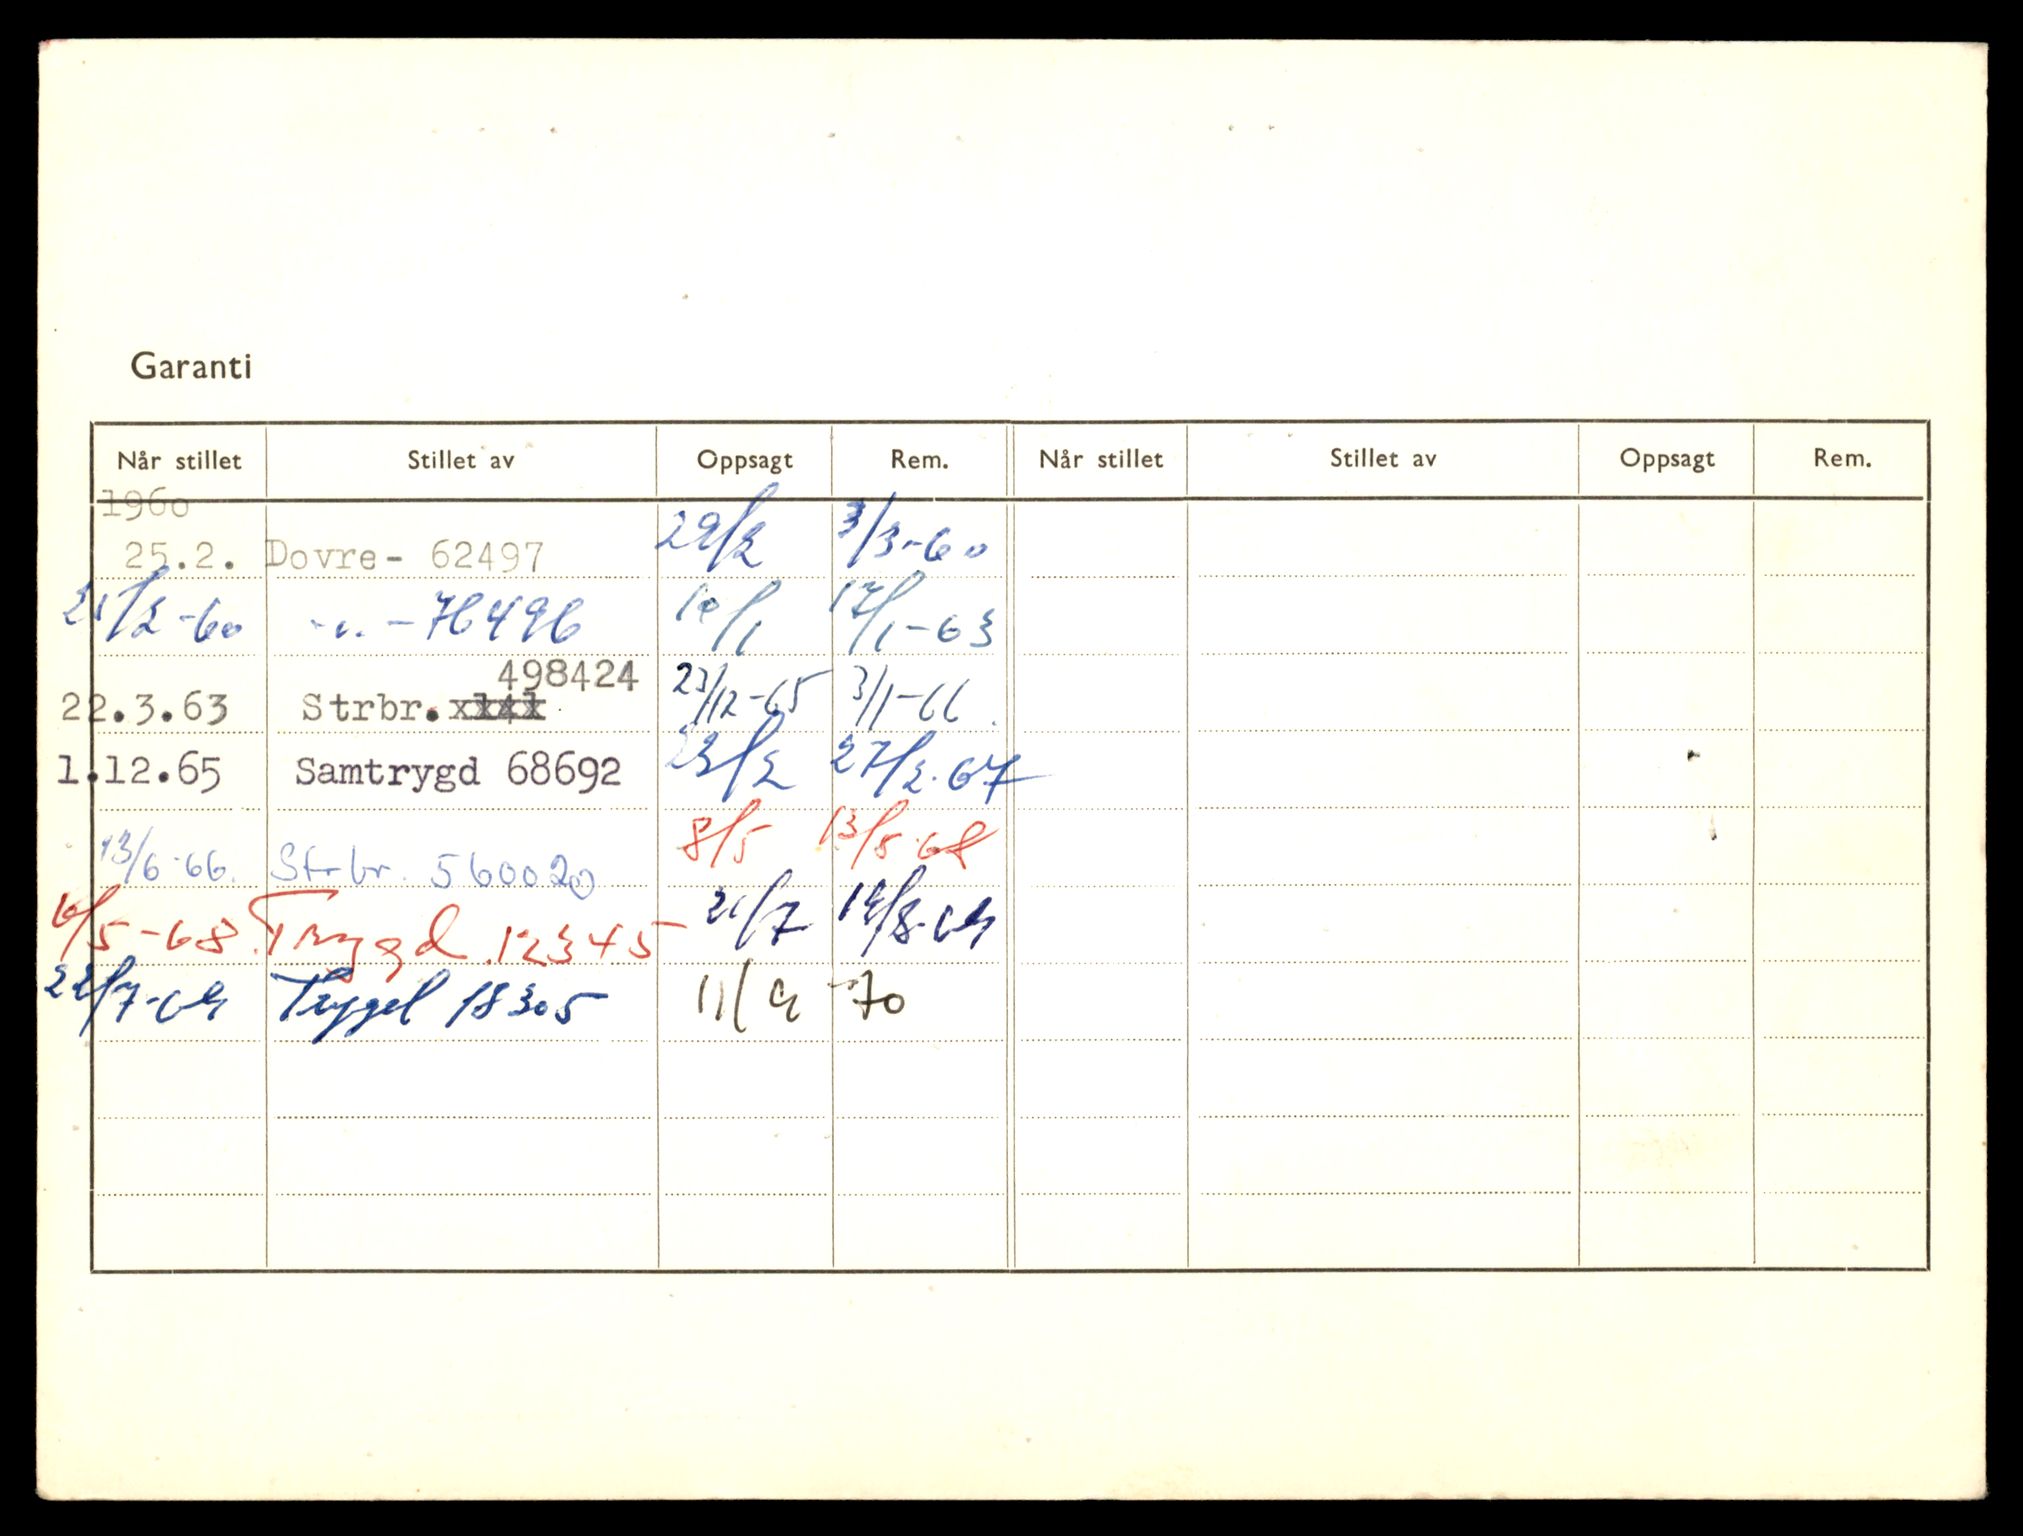 Garanti
Når stillet Stillet av Oppsagt Rem. Når stillet Stillet av Oppsagt Rem.
1960
25.2. Dovre- 62497 29/2 3/3-60
25/2-60 -"- -76496 10/1 17/1-63
498424
22.3.63 Strbr. 23/12-65 3/1-66
1.12.65 Samtrygd 68692 23/2 27/2-67
13/6-66. Strbr. 560020 8/5 13/5-68
6/5-68. Trygd. 12345 21/7 19/8-69
22/7-69 Trygd 18305 11/9-70